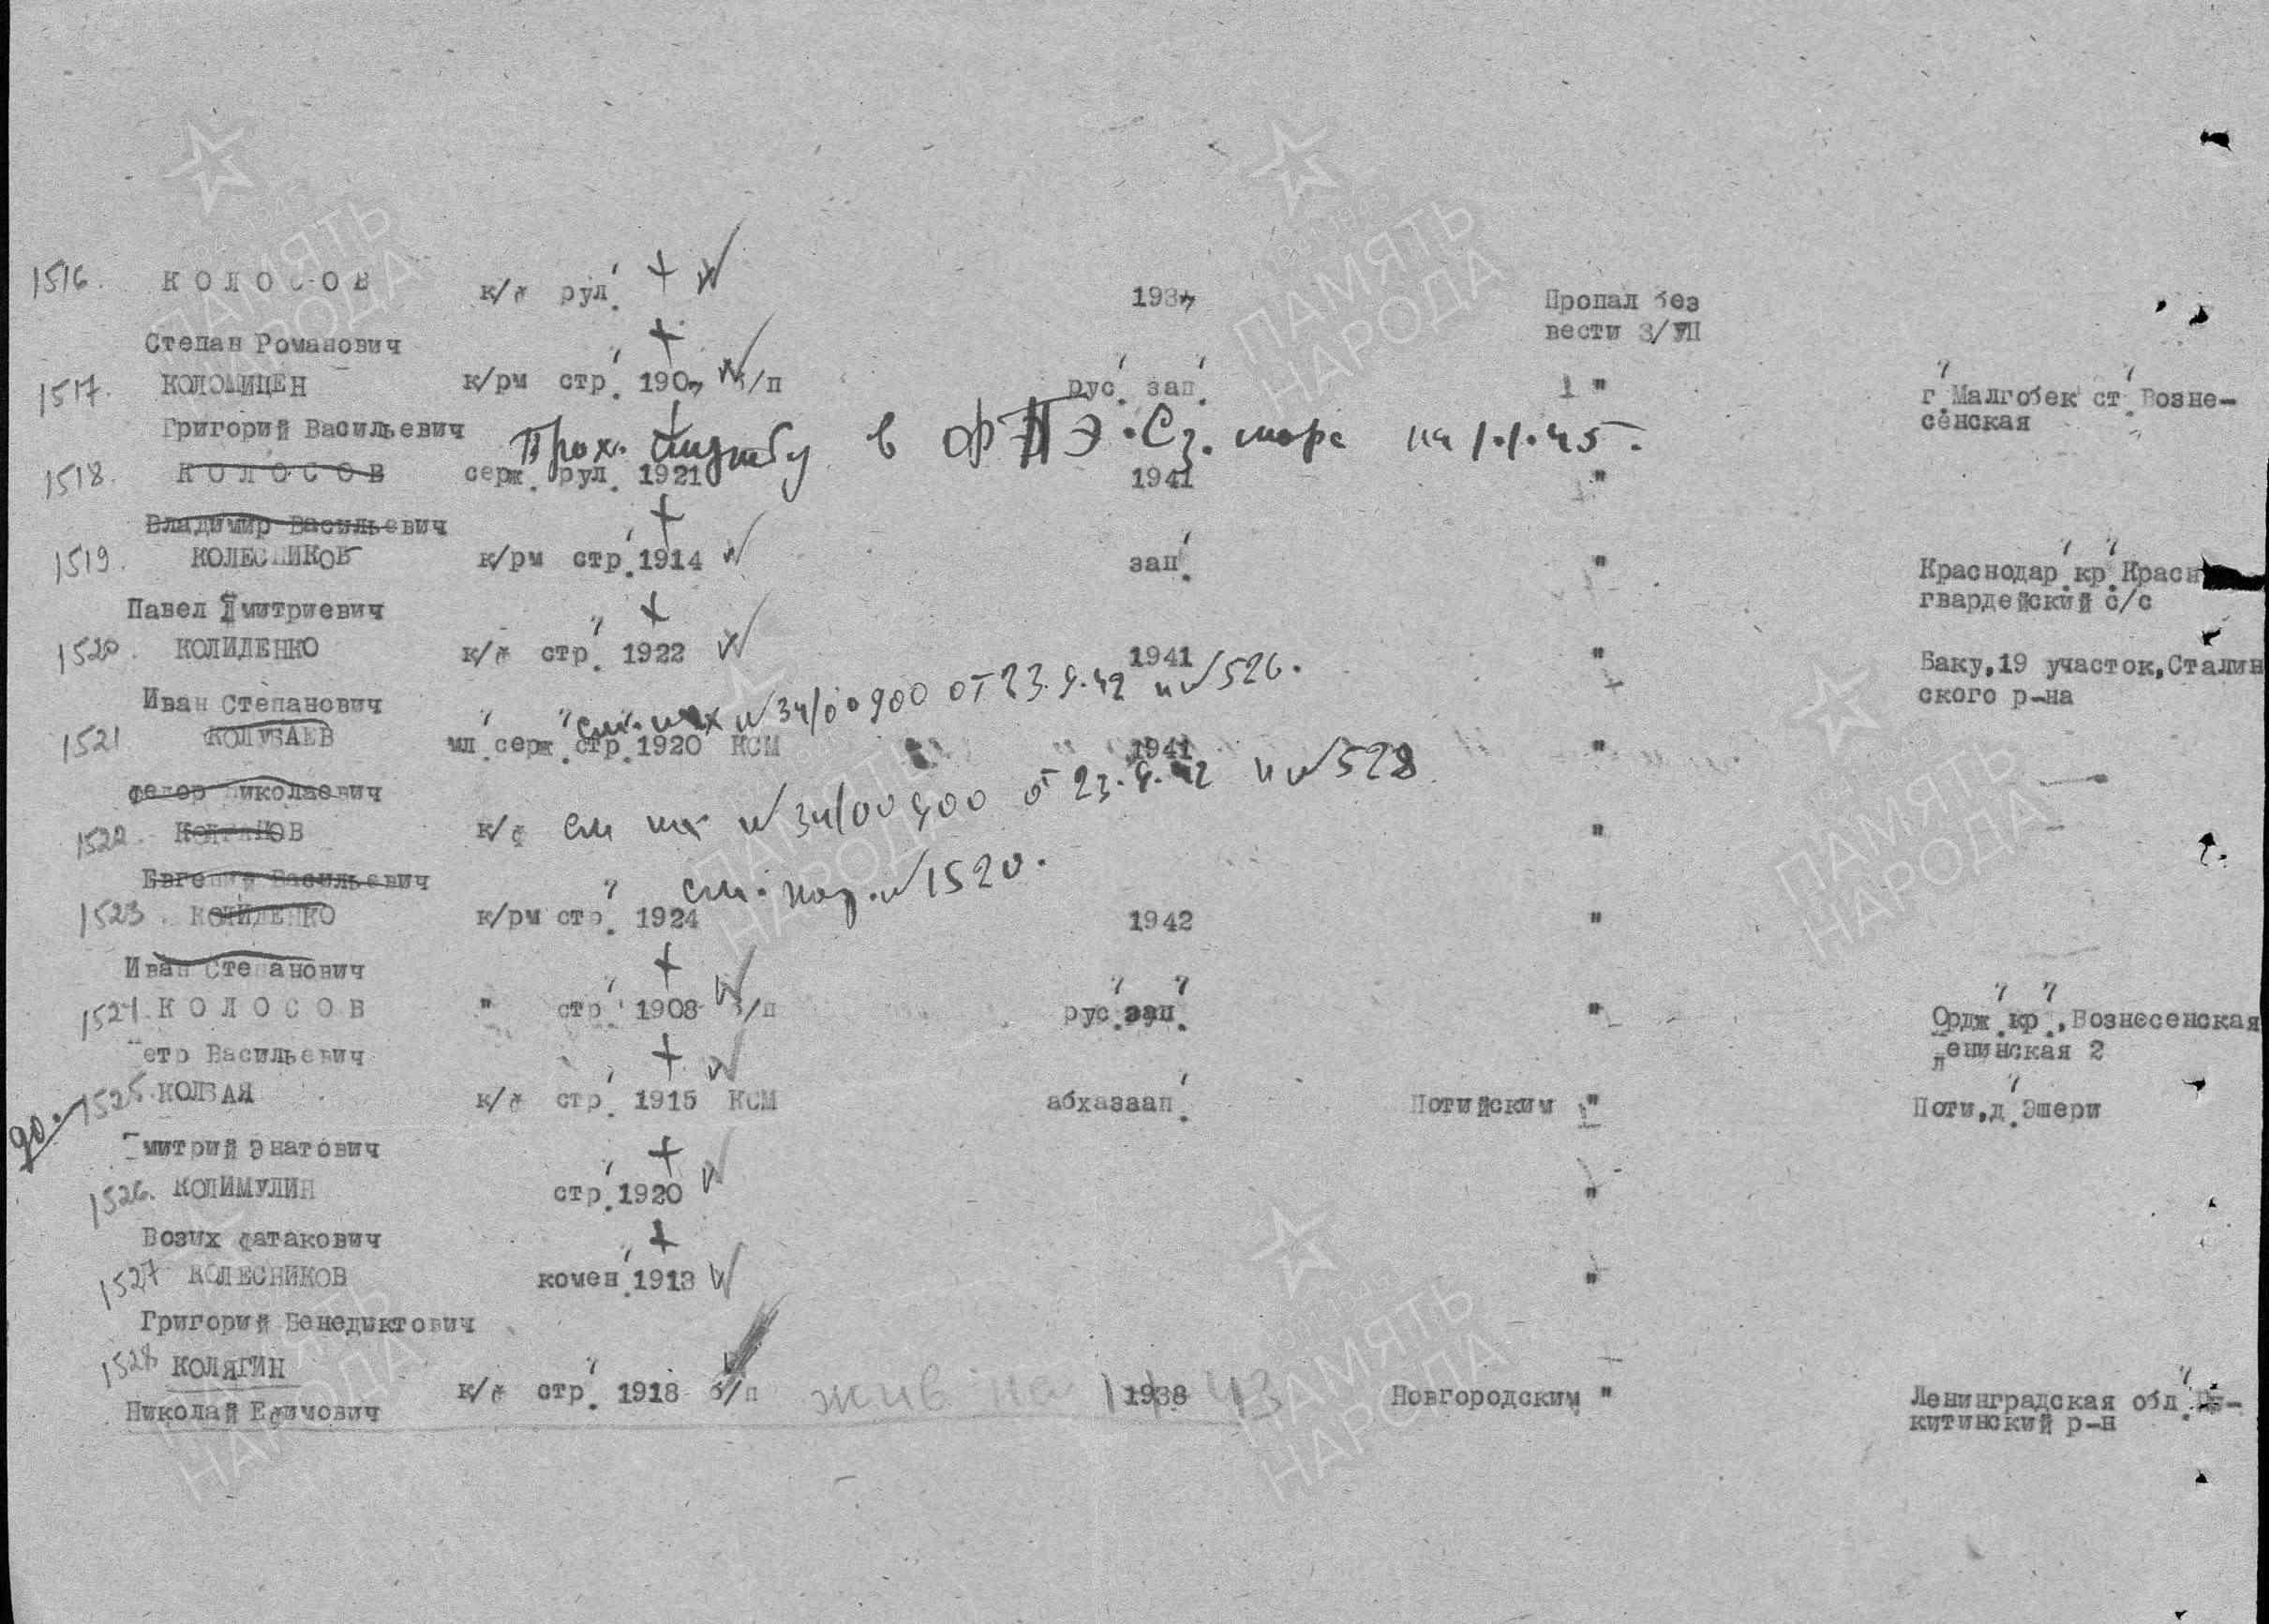 1516. КОЛОСОВ к/ф рул. 1937 Пропал без
вести 3/УП
Степан Романович
1517. КОЛОМИЦЕН к/рм стр. 1907 б/п рус. зап. "
г.Малгобек ст.Возне-
сенская
Григорий Васильевич
Прох. службу в на 1.1.45.
1518. КОЛОСОВ серж. рул. 1921 1941 "
Владимир Васильевич
1519. КОЛЕСНИКОВ к/рм стр.1914 зап. "
Краснодар.кр.Красн
гвардейский с/с
Павел Дмитриевич
1520. КОЛИДЕНКО к/ф стр. 1922 1941 "
Баку,19 участок,Сталин
ского р-на
Иван Степанович
см. №34/00900 от 23.9.42 п №526.
1521 мл.серж.стр.1920 КСМ 1941 "
Федор Николаевич
1522. к/ф см №34/00900 от 23.9.42 п №528 "
Евгений Васильевич
см. поз. №1520.
1523. КОЛИДЕНКО к/рм стр. 1924 1942 "
Иван Степанович
1524. КОЛОСОВ " стр. 1908 б/п рус.зап. "
Ордж.кр.,Вознесенская
Ленинская 2
етр Васильевич
1525. КОЛЗАЯ к/ф стр. 1915 КСМ абхаззап. Потийским "
Поти,д.Эшери
митрий Энатович
1526. КОЛИМУЛИН стр.1920 "
Возих Фатакович
1527 КОЛЕСНИКОВ комен.1913 "
Григорий Бенедиктович
1528 КОЛЯГИН
к/ф стр. 1918 б/п жив на 1938 43 Новгородским "
Ленинградская обл.
китинский р-н
Николай Ефимович
ПАМЯТЬ
НАРОДА
ПАМЯТЬ
НАРОДА
ПАМЯТЬ
НАРОДА
ПАМЯТЬ
НАРОДА
ПАМЯТЬ
НАРОДА
ПАМЯТЬ
НАРОДА